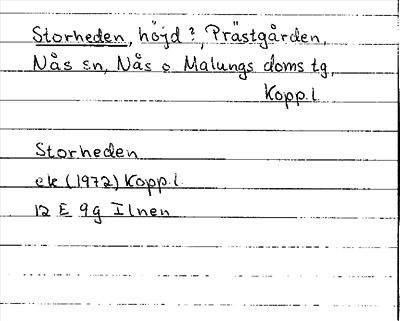 Storheden, höjd?, Prästgården,
Nås sn, Nås o Malungs doms tg,
Kopp.l.
Storheden
ek (1972) Kopp.l.
12 E 9g Ilnen